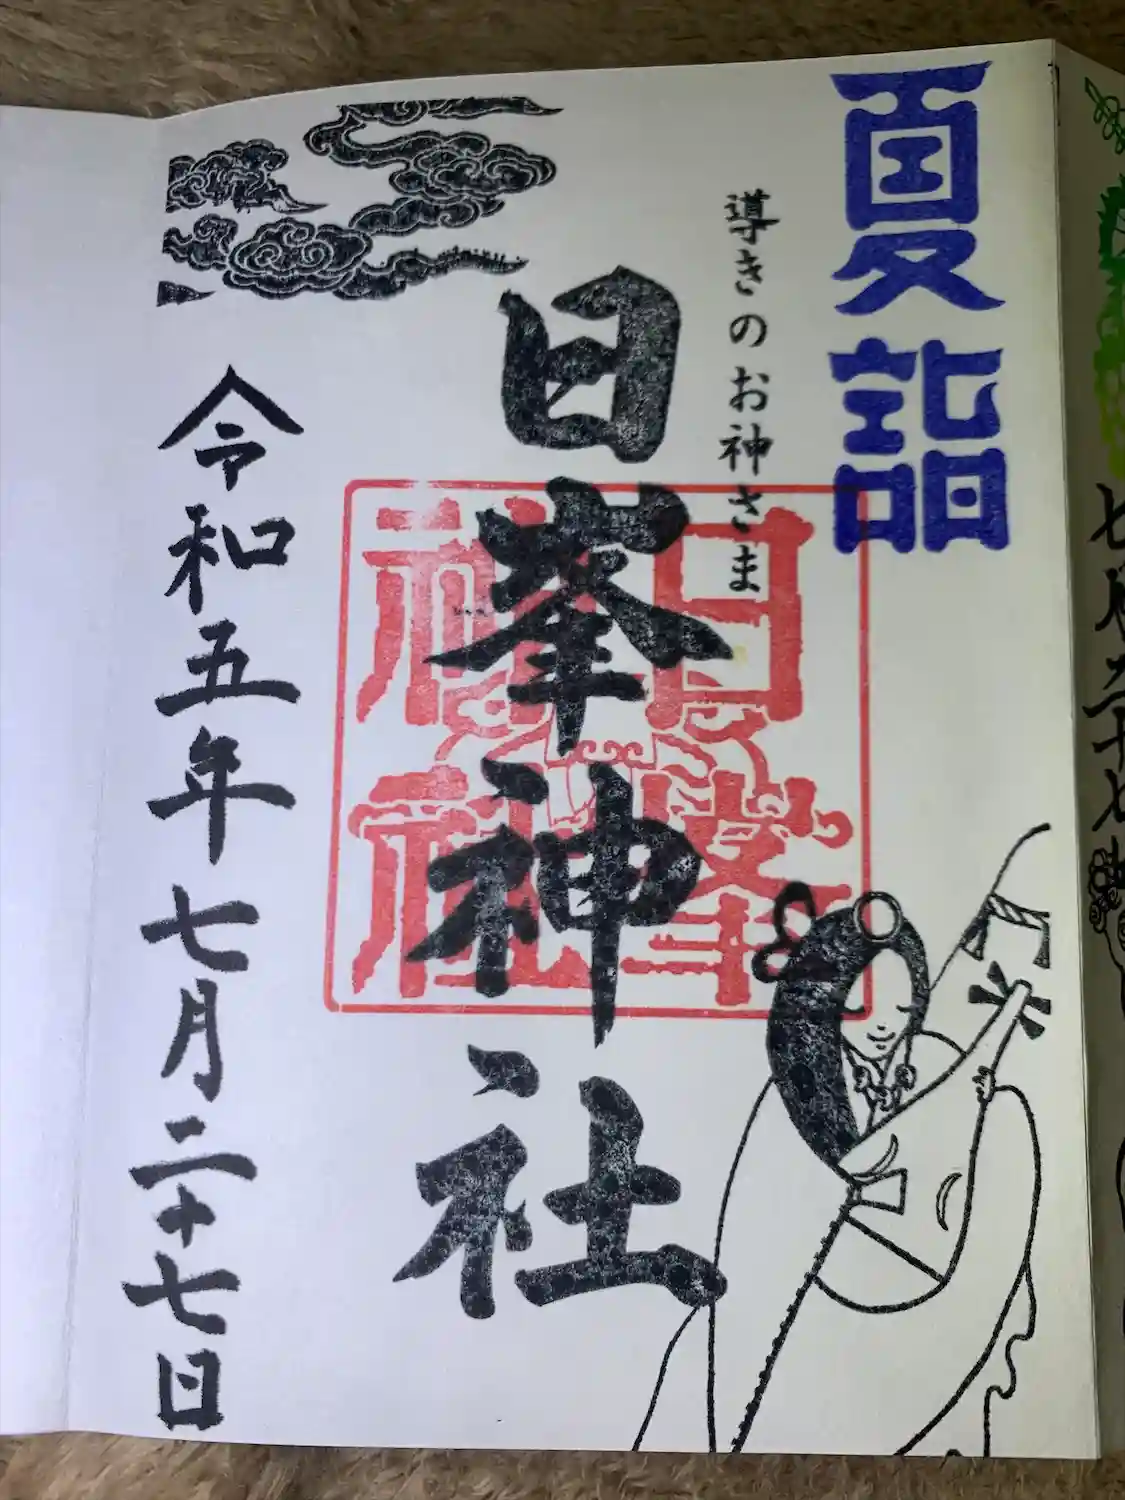 夏詣
導きのお神さま
日峯神社
日峯
神社
令和五年七月二十七日